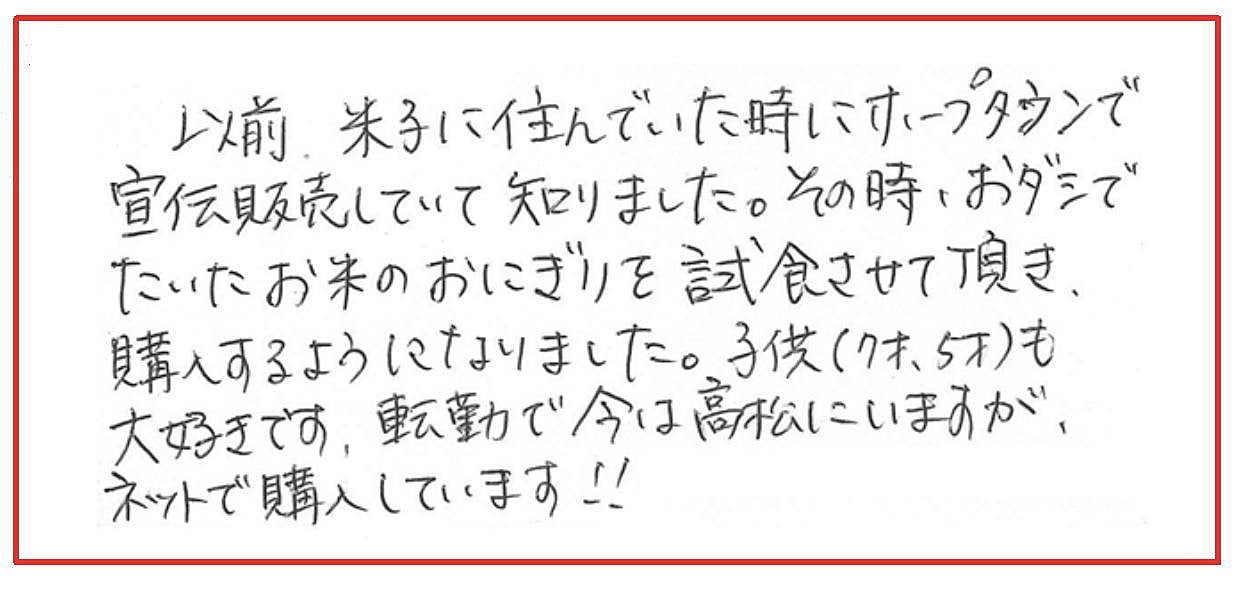 以前、米子に住んでいた時にホープタウンで
宣伝販売していて知りました。その時、おダシで
たいたお米のおにぎりを試食させて頂き、
購入するようになりました。子供(7才、5才)も
大好きです、転勤で今は高松にいますが、
ネットで購入しています!!